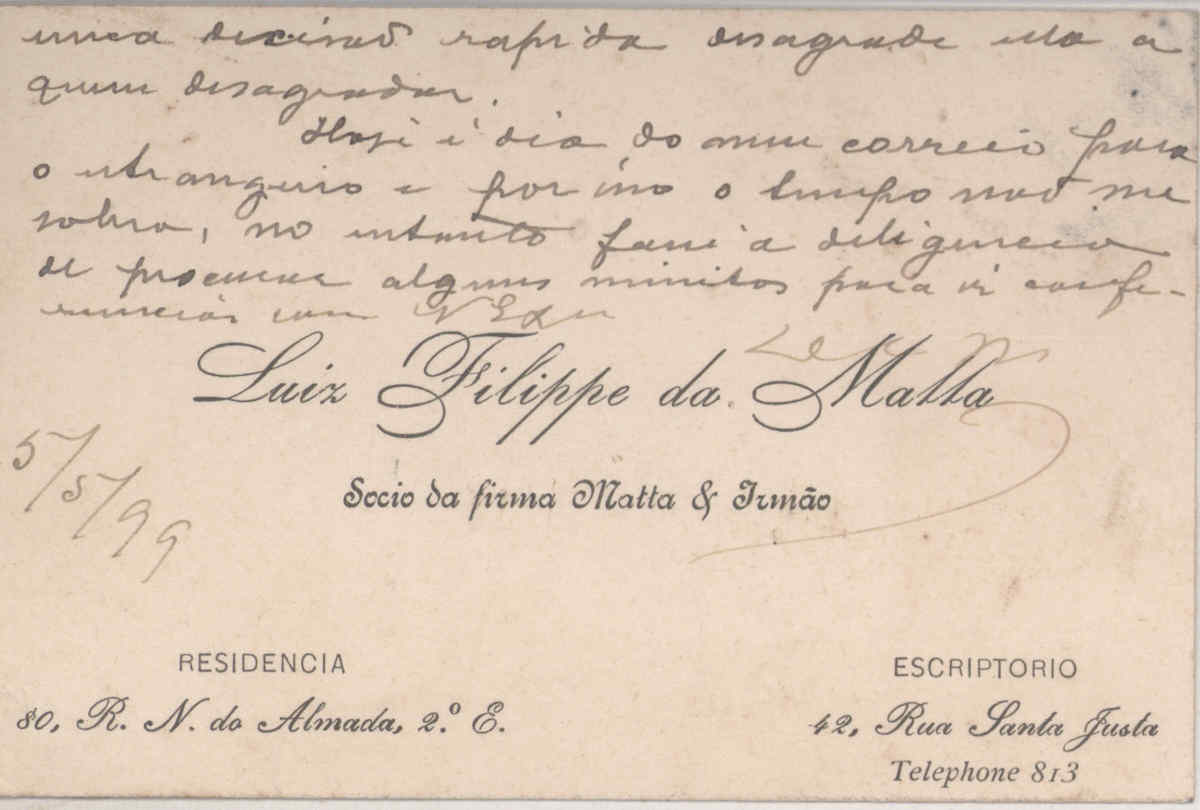 uma decisaõ rapida desagrade ella a
quem desagradar.
Hoje é dia do meu correio para
o estrangeiro e por isso o tempo naõ me
sobra, no entanto farei a diligencia
de procurar alguns minutos para ir confe-
renciar com V Exa
Luiz Filippe da Matta
Socio da firma Matta & Irmão
5/5/99
RESIDENCIA
80, R. N. do Almada, 2.º E.
ESCRIPTORIO
42, Rua Santa Justa
Telephone 813